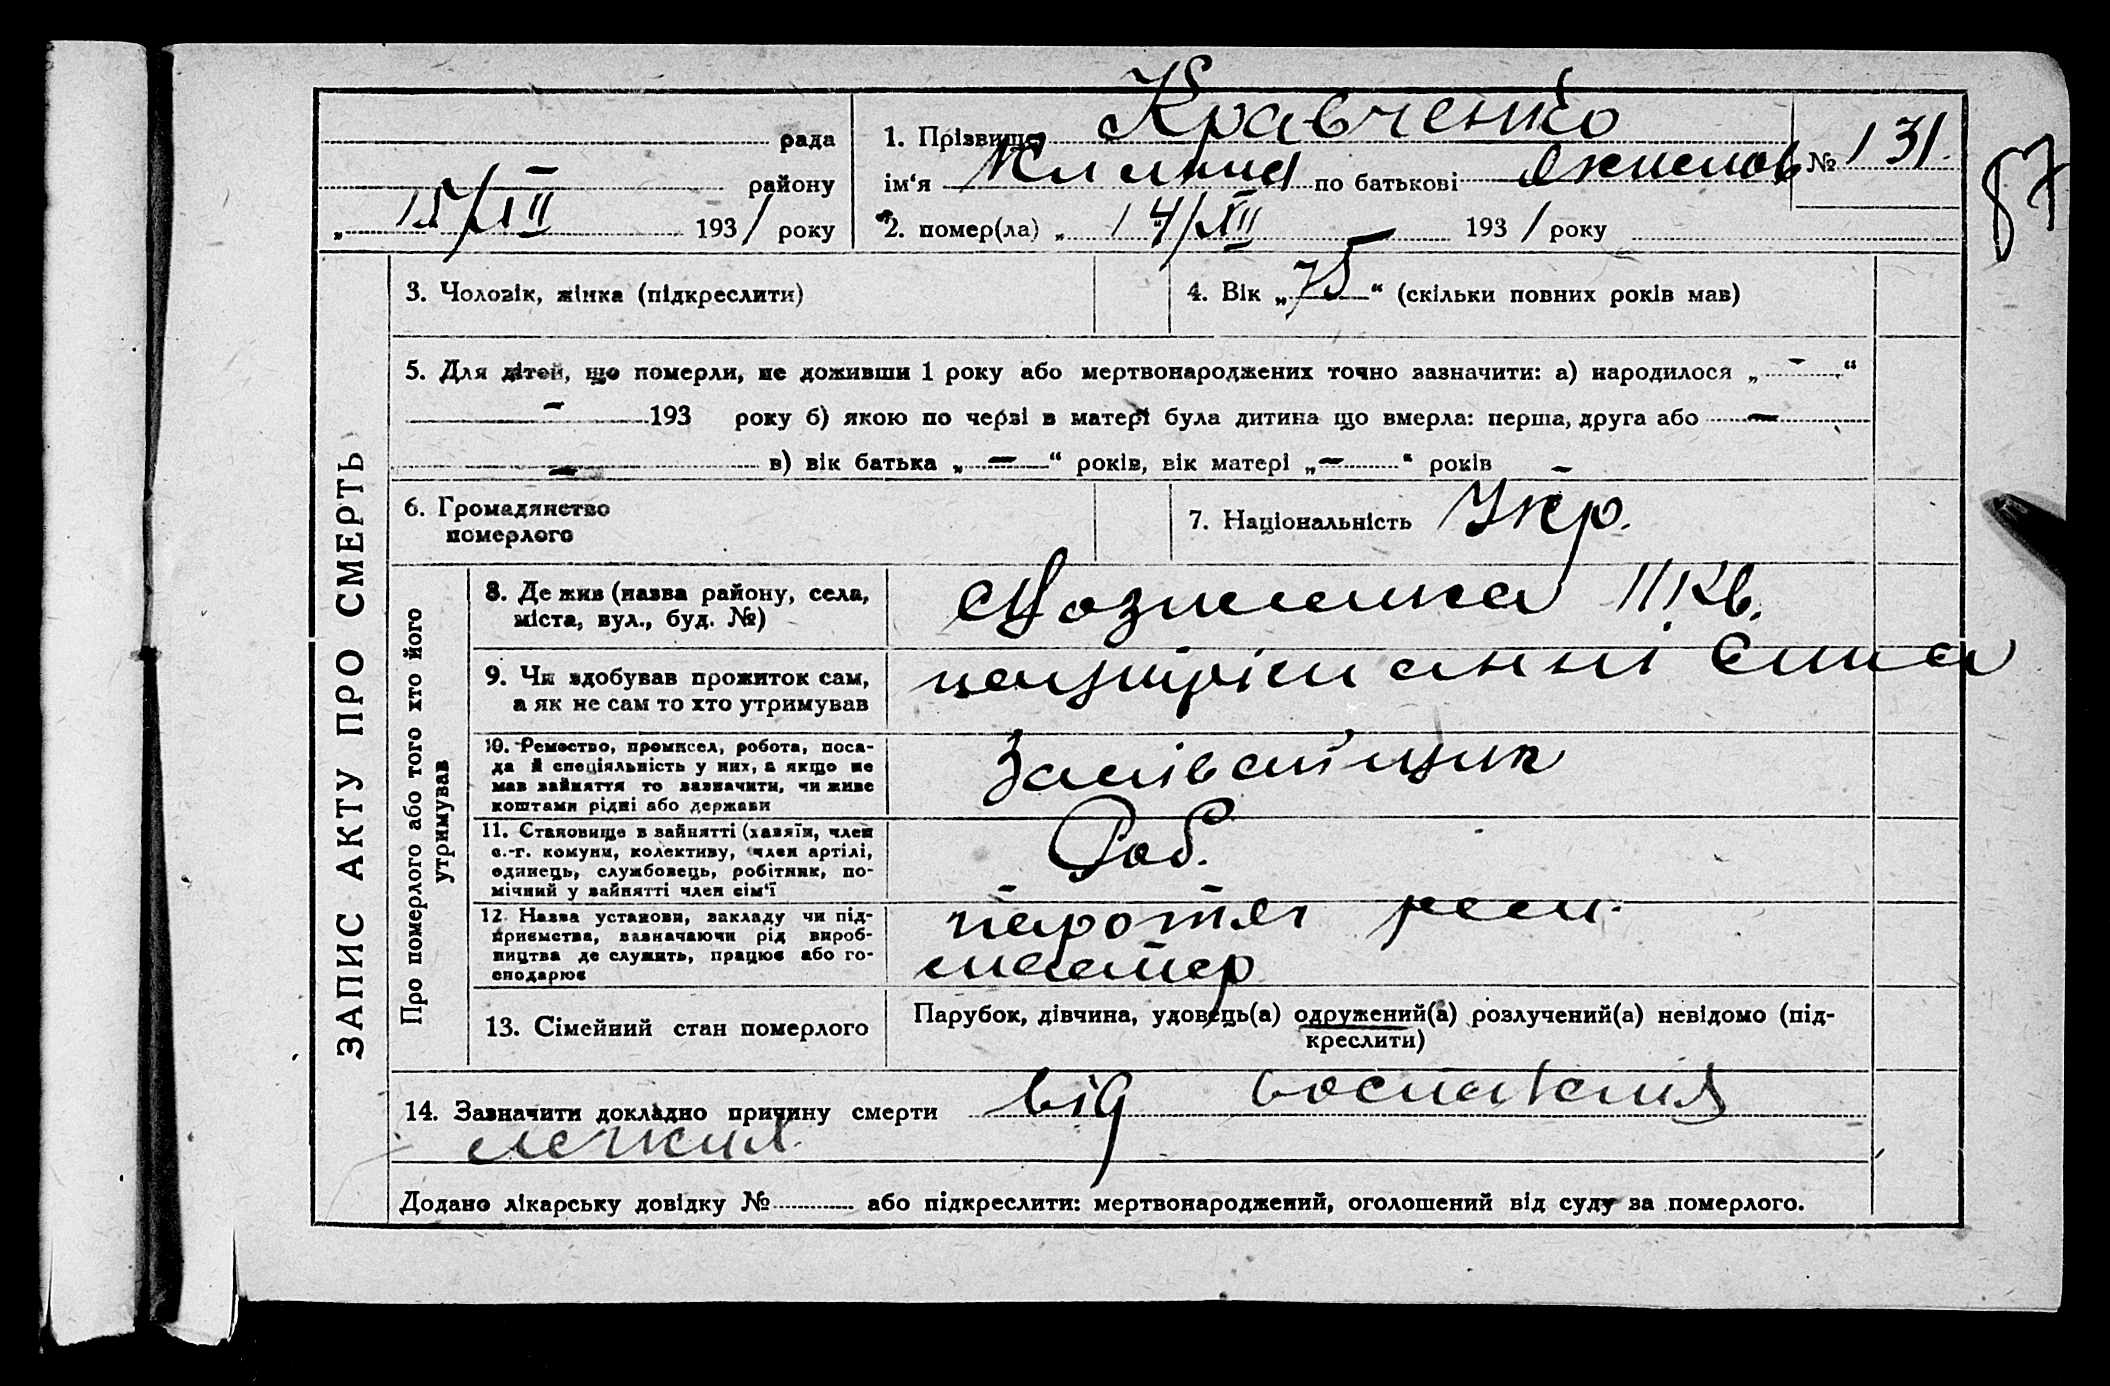 рада
району
„15/XII 1931 року
1. Прізвище Кравченко
ім‘я по батькові
№ 131.
87
2. помер(ла) „14/XII 1931 року
ЗАПИС АКТУ ПРО СМЕРТЬ
3. Чоловік, жінка (підкреслити)
4. Вік „75“ (скільки повних років мав)
5. Для дітей, що померли, не доживши 1 року або мертвонароджених точно зазначити: а) народилося „ - “
- 193 року б) якою по черзі в матері була дитина що вмерла: перша, друга або -
- в) вік батька „ - “ років, вік матері „ - “ років -
6. Громадянство
померлого
7. Національність Укр.
Про померлого або того хто його
утримував
8. Де жив (назва району, села,
міста, вул., буд. №)
9. Чи здобував прожиток сам,
а як не сам то хто утримував
на утріманні сина
10. Ремество, промисел, робота, поса-
да й спеціяльність у них, а якщо не
мав зайняття то зазначити, чи живе
коштами рідні або держави
11. Становище в зайнятті (хазяїн, член
с.-г. комуни, колективу, член артілі,
одинець, службовець, робітник, по-
мічний у зайнятті член сім‘ї
Роб.
12. Назва установи, закладу чи під-
приємства, зазначаючи рід вироб-
ництва де служить, працює або го-
сподарює
паротяг рем.
мастер
13. Сімейний стан померлого
Парубок, дівчина, удовець(а) одружений(а) розлучений(а) невідомо (під-
креслити)
14. Зазначити докладно причину смерти від воспаления
легких
Додано лікарську довідку № або підкреслити: мертвонароджений, оголошений від суду за померлого.